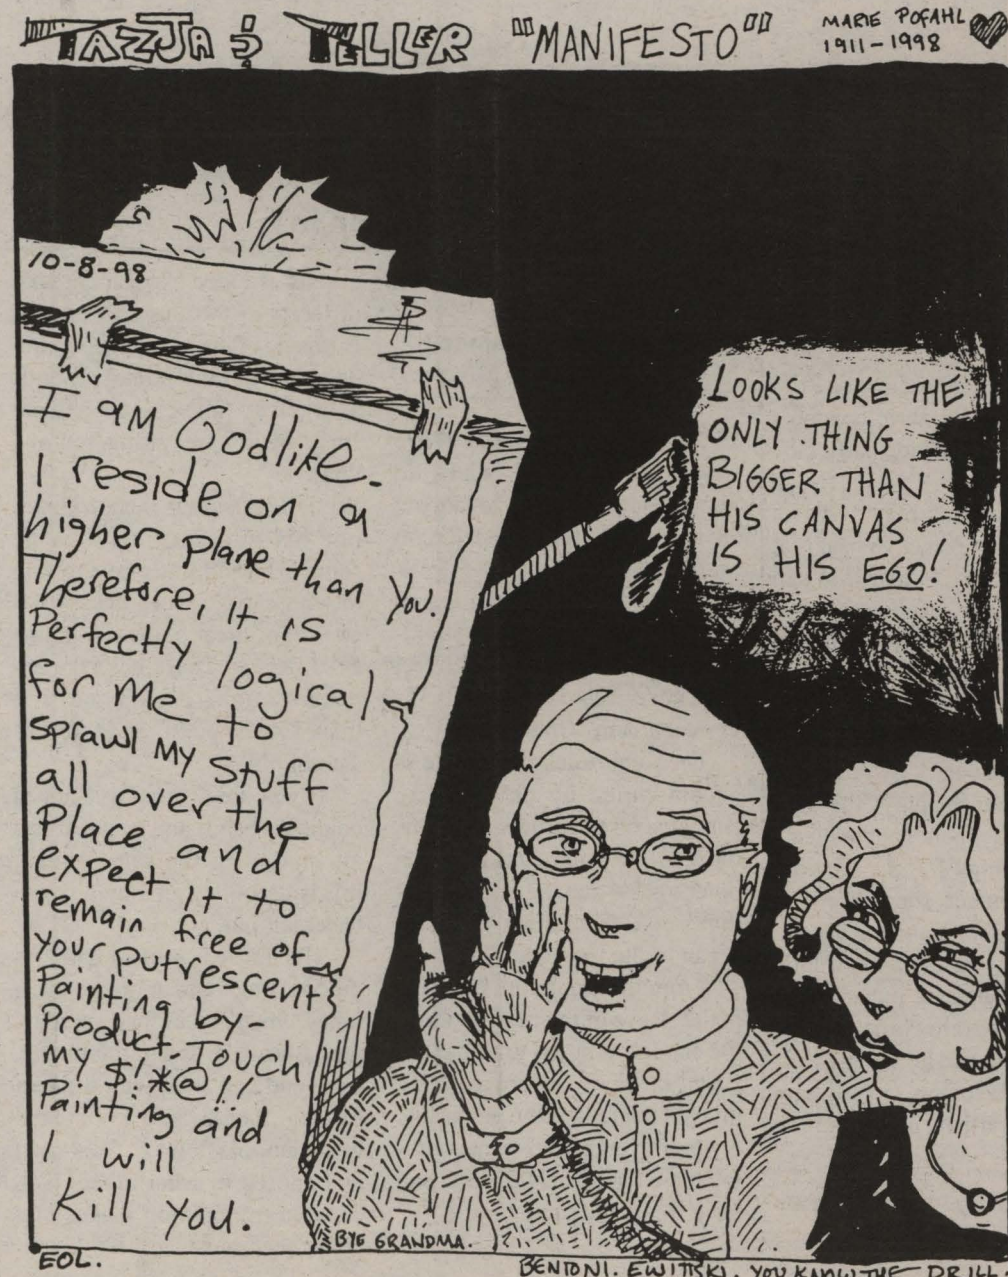 TAZJA & TELLER "MANIFESTO"
MARIE POFAHL
1911-1998
10-8-98
I am Godlike.
I reside on a
higher plane than you.
Therefore, it is
Perfectly logical
for me to
sprawl my stuff
all over the
Place and
expect it to
remain free of
your putrescent
Painting by-
Product. Touch
my $!*@!!
Painting and
I will
Kill you.
LOOKS LIKE THE
ONLY THING
BIGGER THAN
HIS CANVAS
IS HIS EGO!
BYE GRANDMA.
EOL.
BENTONI. EWITTSKI. YOU KNOW THE DRILL.